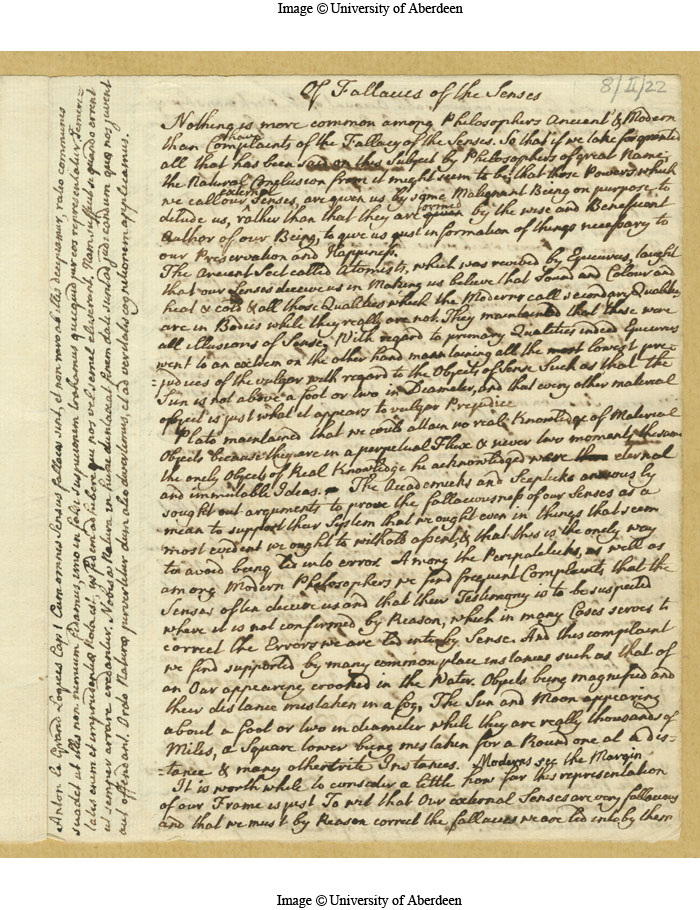 Image © University of Aberdeen
8/II/22
Of Fallacies of the Senses
Nothing is more common among Philosophers Ancient & Modern
than Complaints of the Fallacy of the Senses. So that if we take for granted
all that has been said on this Subject by Philosophers of great Name,
the Natural Conclusion from it might seem to be, that those Powers which
we call our external Senses, are given us by some Malignant Being on purpose to
delude us, rather than that they are formed by the wise and Beneficent
Author of our Being, to give us just information of things necessary to
our Preservation and Happiness.
The Ancient Sect called Atomists, which was revived by Epicurus, taught
that our Senses deceive us in Making us believe that Sound and Colour and
heat & cold & all those Qualities which the Moderns call secondary Qualities
are in Bodies while they really are not. They maintained that these were
all illusions of Sense. With regard to primary Qualities indeed Epicurus
went to an extrem on the other hand maintaining all the most lowest pre-
=judices of the vulgar with regard to the Objects of Sense Such as that the
Sun is not above a foot or two in Diameter, and that every other material
object is just what it appears to vulgar Prejudice
Plato maintained that we could attain no real Knowledge of Material
Objects because they are in a perpetual Flux & never two moments the same
the onely Objects of Real Knowledge he acknowledged were eternal
and immutable Ideas. The Academicks and Scepticks anxiously
sought out arguments to prove the fallaciousness of our Senses as a
mean to support their System that we ought even in things that seem
most evident we ought to withold assent, & that this is the onely way
to avoid being led into error. Among the Peripateticks, as well as
among Modern Philosophers we find frequent Complaints, that the
Senses often deceive us and that their Testimony is to be suspected
where it is not confirmed by Reason, which in many Cases serves to
correct the Errors we are led into by Sense. And this complaint
we find supported by many common place instances such as that of
an Oar appearing crooked in the Water. Objects being magnified and
their distance mistaken in a fog, The Sun and Moon appearing
about a foot or two in diameter while they are really thousands of
Miles, a Square tower being mistaken for a Round one at a dis-
=tance & many other trite Instances. Moderns see the Margin
It is worth while to consider a little how far this representation
of our Frame is just To wit that Our external Senses are very fallacious
and that we must by Reason correct the fallacies we are led into by them
Anton le Grand Logices Cap 1 Cum omnes Sensus fallaces sint, et non raro ab illis decipiamur, ratio communis
suadet ut illis non nimium fidamus, imo in falsi suspicionem trahamus quicquid per eos representatur, Temeri-
tatis enim et imprudentiæ nota est, iis fidem adhibere qui nos vel semel eluserunt, Nam si
ut semper errare credantur. Nobis a Natura in hunc duntaxat finem dati sunt ad judicandum quæ nos juvent
aut offendant. Ordo Naturæ pervertitur dum alio divertimus, et ad veritatis cognitionem applicamus.
Image © University of Aberdeen